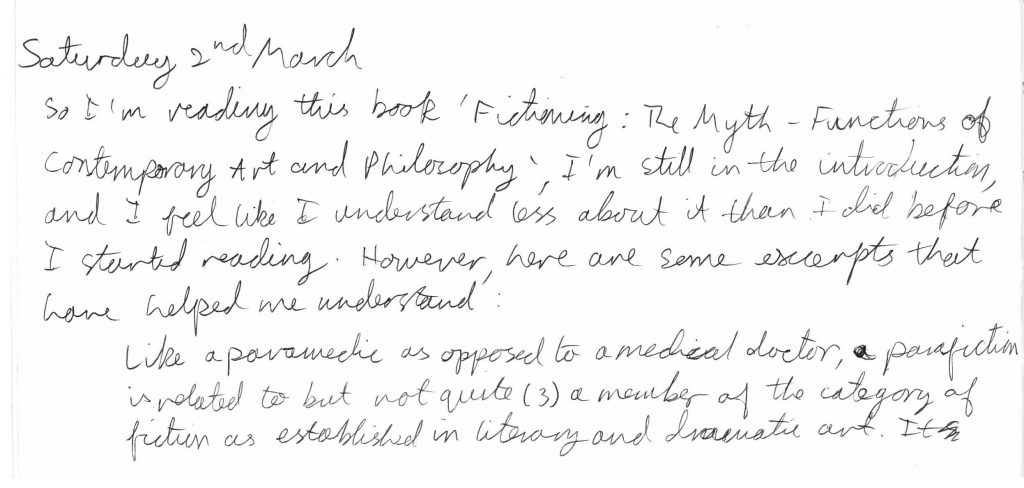 Saturday 2nd March
So I'm reading this book 'Fictioning: The Myth-Functions of
Contemporary Art and Philosophy', I'm still in the introduction,
and I feel like I understand less about it than I did before
I started reading. However, here are some excerpts that
have helped me understand:
Like a paramedic as opposed to a medical doctor, a parafiction
is related to but not quite (3) a member of the category of
fiction as established in literary and dramatic art. It